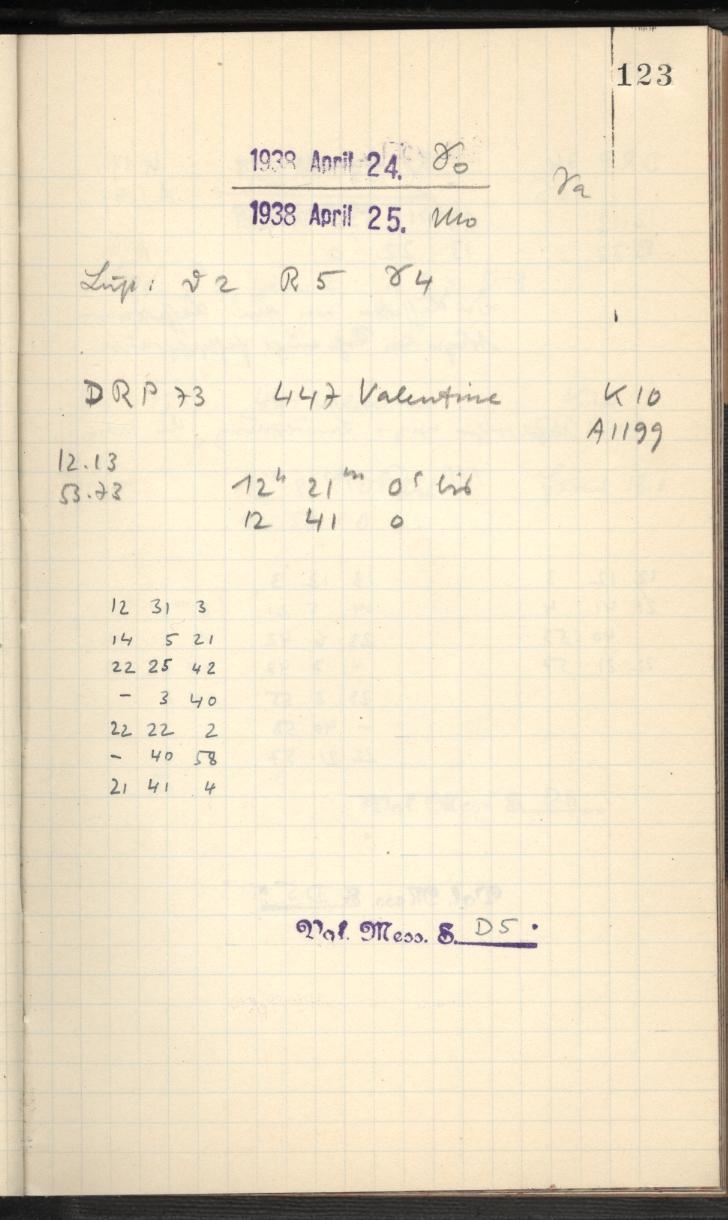 123
1938 April 24. So
1938 April 25. Mo
Lup: D 2 R 5 S 4
DRP 73 447 Valentine K 10
A1199
12.13
53.73
12ʰ 21ᵐ 0ˢ bis
12 41 0
12 31 3
14 5 21
22 25 42
- 3 40
22 22 2
- 40 58
21 41 4
Vgl. Mess. S. D5.